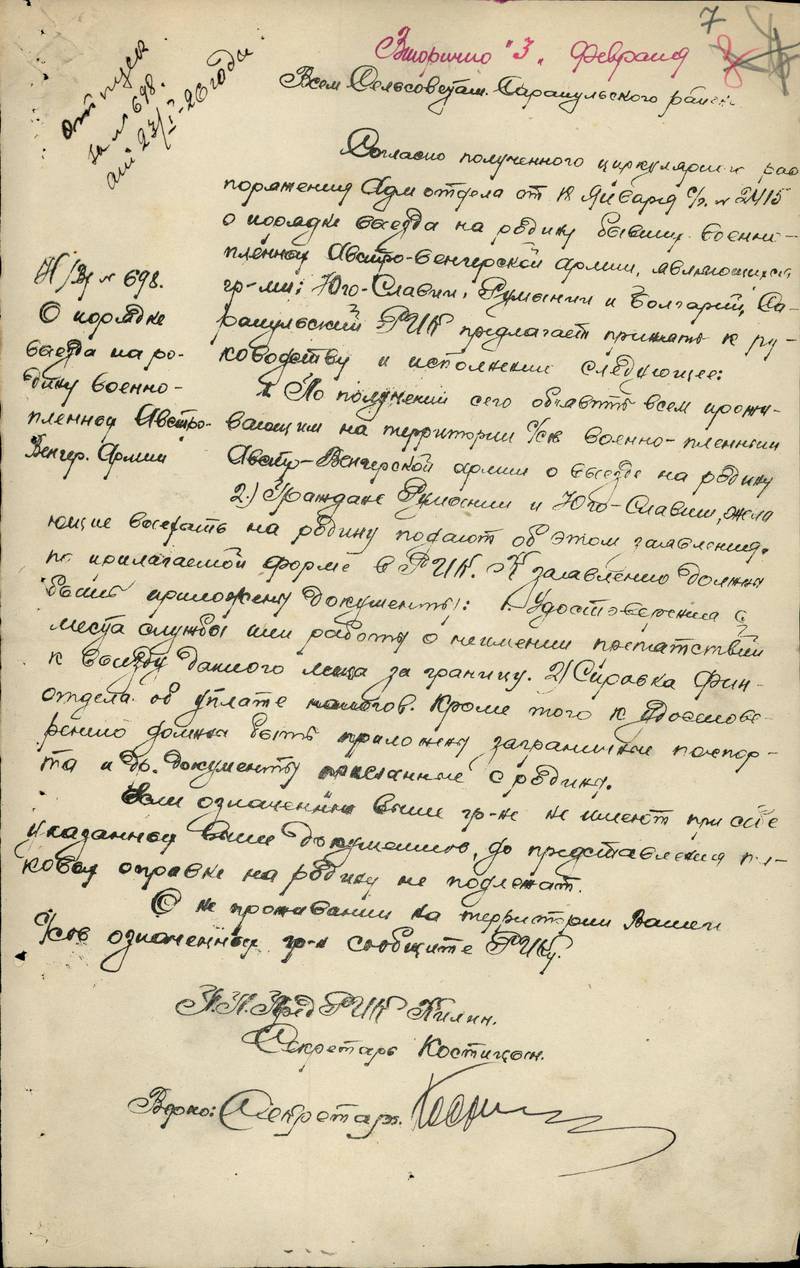 7
8
Вторично "3" Февраля
Всем Сельсоветам Сарапульского района
отпуск
за № 698.
от 23/I-26 года
Согласно полученного циркулярн. рас
поряжения Адмотдела от Января с/г. № 2415
о порядке выезда на родину бывших военно-
пленных Австро-Венгерской армии, являющихся
гр-ми: Юго-Славии, Румынии и Болгарии, Са-
рапульский РИК предлагает принять к ру-
ководству и исполнении следующее:
№ 698.
О порядке
выезда на ро-
дину военно-
пленных Австро-
Венгер. Армии
1. По получении сего объявить всем прожи-
вающим на территории с/сов военно-пленным
Австр-Венгерской армии о выезде на родину
2.) Граждане Румынии и Юго-Славии, жела
ющие выехать на родину подают об этом заявления.
по прилагаемой форме в РИК. К заявлению должны
быть приложены документы: 1. Удостоверения с
места службы или работы о неимении препятствий
к выезду данного лица за границу. 2) Справка Фин-
отдела об уплате налогов. Кроме того к удостове-
рению должны быть приложены заграничные паспор-
та и др. документы присланные с родины.
Если означенные выше гр-не не имеют при себе
указанных выше документов, до представления та-
ковых оправке на родину не подлежат.
О не проживании на территории Вашего
с/сов означенных гр-н сообщите РИКу.
П.П. Пред РИК Килин.
Секретарь Костицын.
Верно: Секретарь